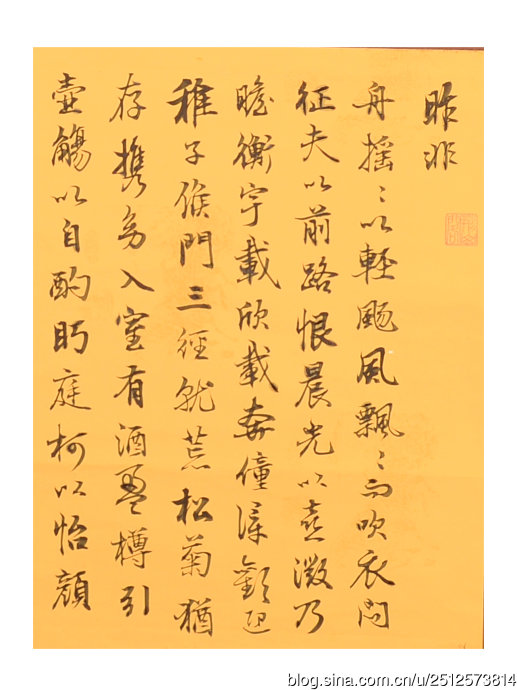 昨非
舟摇〻以輕颺風飄〻而吹衣問
征夫以前路恨晨光以熹微乃
瞻衡宇載欣載奔僮僕歡迎
稚子候門三徑就荒松菊猶
存攜幼入室有酒盈樽引
壺觴以自酌眄庭柯以怡顏
blog.sina.com.cn/u/2512573814